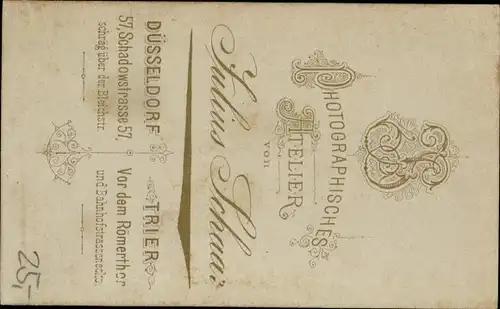 PHOTOGRAPHISCHES
ATELIER
VON
Julius Schaar
DÜSSELDORF
57, Schadowstrasse 57,
schräg über der Bleichstr.
TRIER
Vor dem Römerthor
und Bahnhofstrassenecke.
25,-